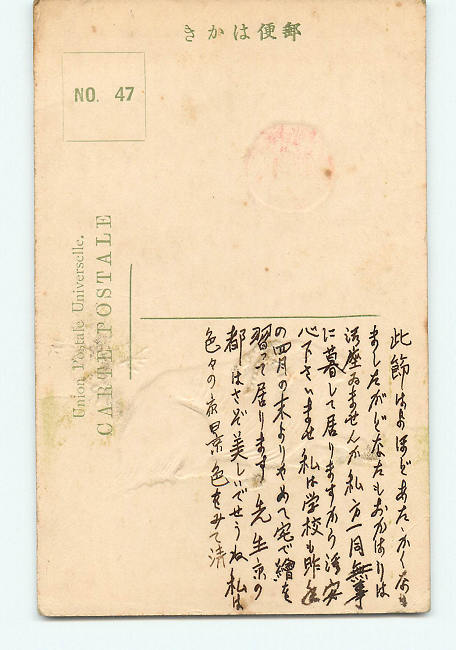 きかは便郵
NO. 47
Union Postale Universelle.
CARTE POSTALE
此節はよほどあたゝかくなり
ましたがどなたもおかはりは
御座ゐませんか私方一同無事
に暮して居りますから御安
心下さいませ私は学校も昨年
の四月の末よりやめて宅で繪を
習って居ります先生京の
都はさぞ美しいでせうね私は
色々の夜景色をみて